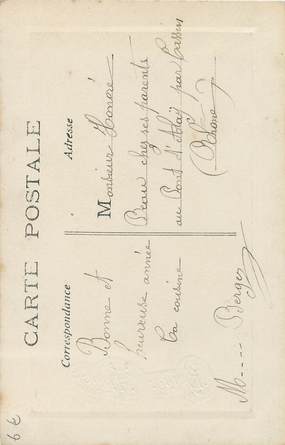 CARTE POSTALE
Correspondance
Bonne et
heureuse année
ta cousine
M---- Berger
Adresse
Monsieur Honoré
chez ses parents
au Pont d' par
(Rhône)